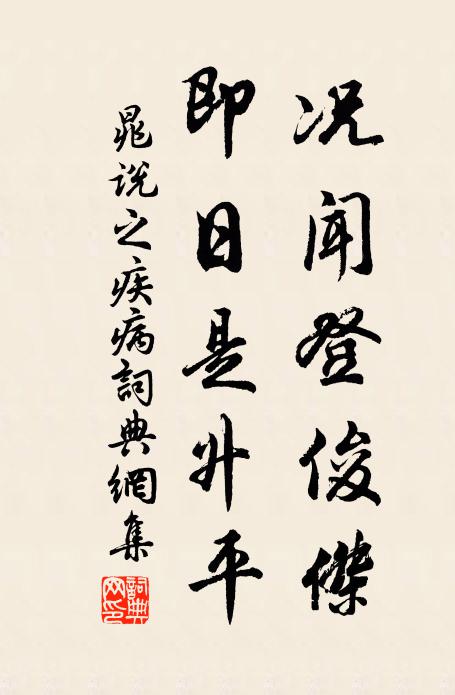 况闻登俊傑
即日是升平
晁说之疾病詞典網集
詞典網印